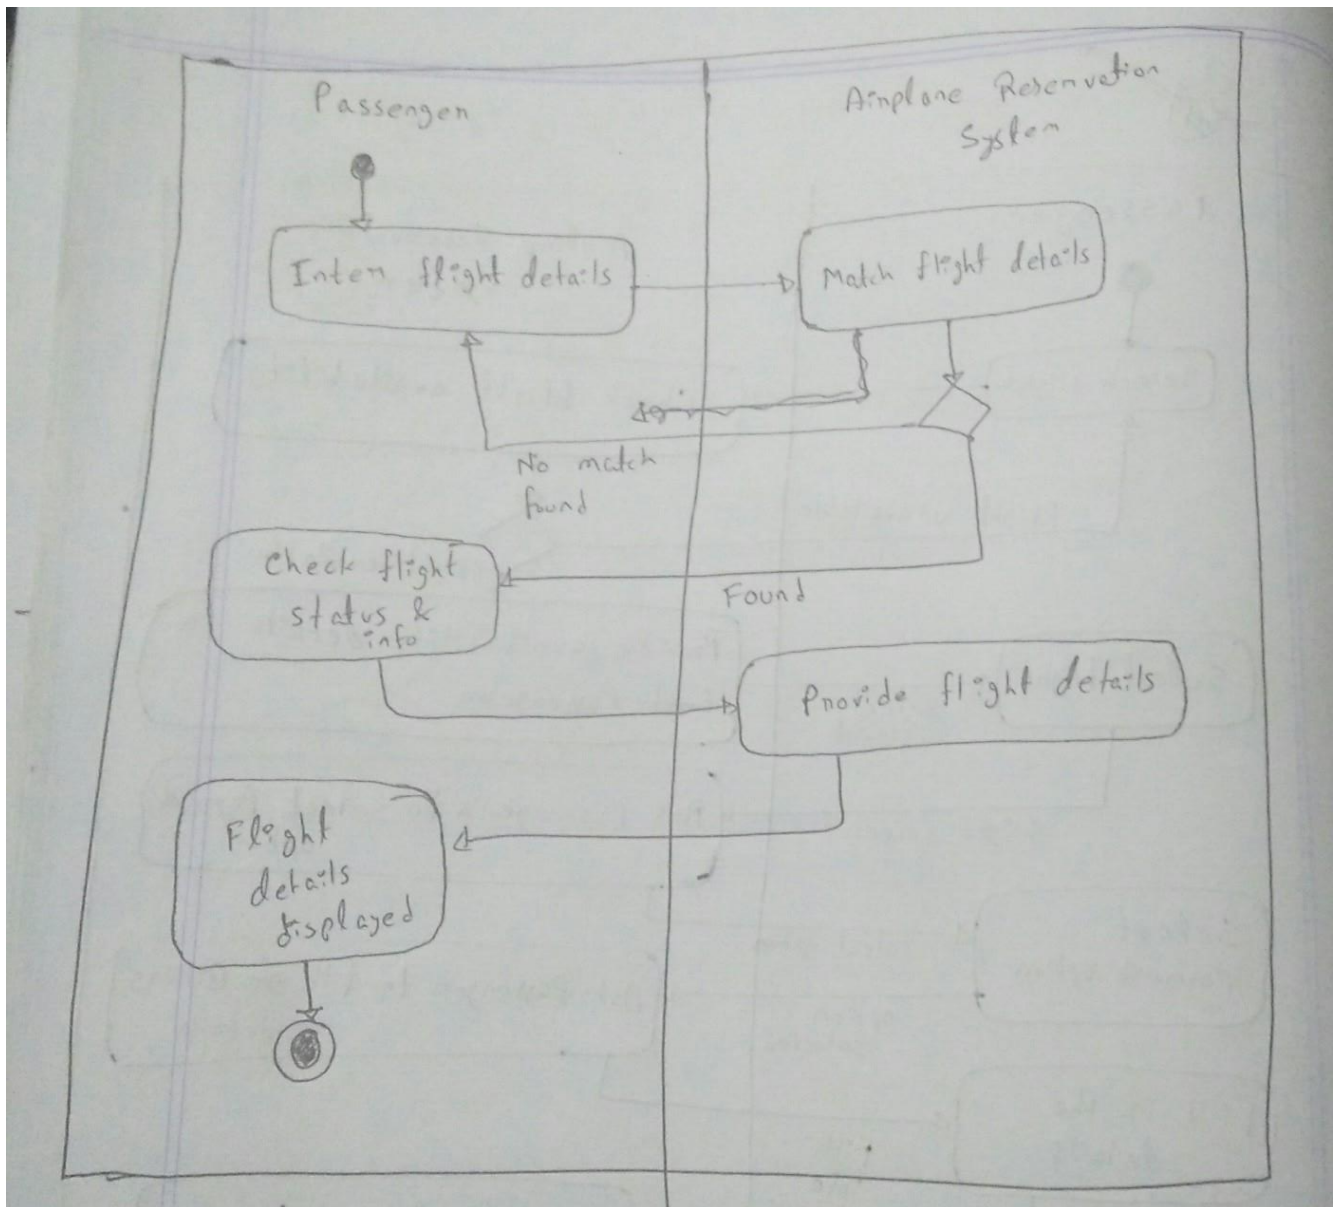 Passengen
Ainplane Resenvation
System
Inten flight details
Match flight details
No match
found
Check flight
status &
info
Found
Pnovide flight details
Flight
details
displayed